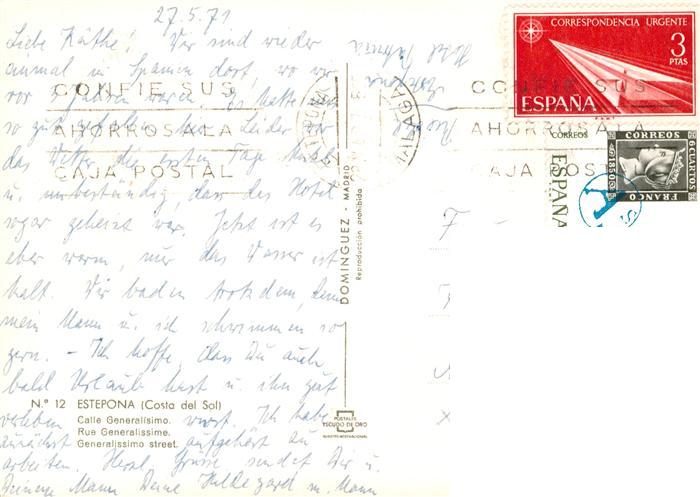 27.5.71
Liebe Käthe! Wir sind wieder
einmal in Spanien dort, wo wir
vor 2 Jahren waren. Es hatte uns
so gut gefallen hier. Leider war
das Wetter die ersten Tage
u. unbeständig, dass das Hotel
sogar geheizt war. Jetzt ist es
aber warm, nur das Wasser ist
kalt. Wir baden trotzdem, denn
mein Mann u. ich schwimmen so
gern. - Ich hoffe, dass Du auch
bald Urlaub hast u. ihn gut
verleben wirst. Ich habe
zunächst aufgehört zu
arbeiten. Herzl. Grüsse sendet Dir u.
Deinem Mann Deine Hildegard m. Mann
N.º 12 ESTEPONA (Costa del Sol)
Calle Generalísimo.
Rue Generalissime.
Generalissimo street.
DOMINGUEZ - MADRID
Reproducción prohibida
POSTALES
ESCUDO DE ORO
Estepona
Hotel
CONFIE SUS
AHORROS A LA
CAJA POSTAL
MALAGA
CONFIE SUS
AHORROS A LA
CAJA POSTAL
CORRESPONDENCIA URGENTE
3
PTAS
ESPAÑA
F.N.M.T
CORREOS
ESPAÑA
CORREOS
6 CUARTOS
1850
FRANCO